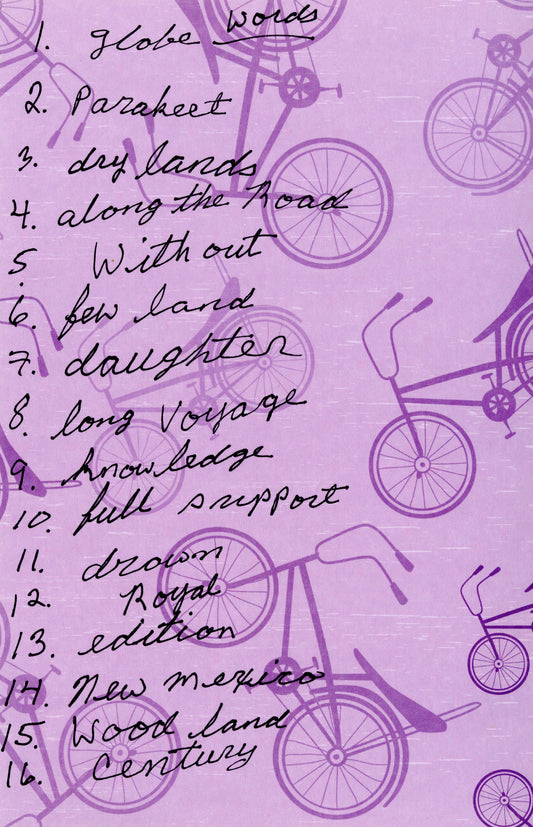 words
1. globe
2. Parakeet
3. dry lands
4. along the Road
5. With out
6. few land
7. daughter
8. long Voyage
9. knowledge
10. full support
11. drown
12. Royal
13. edition
14. New mexico
15. Wood land
16. Century